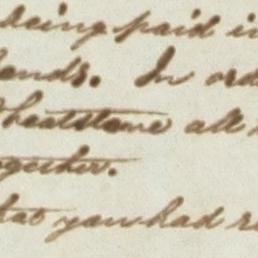 being paid in
lands. In ord
Wheatstone all
together.
that you had re